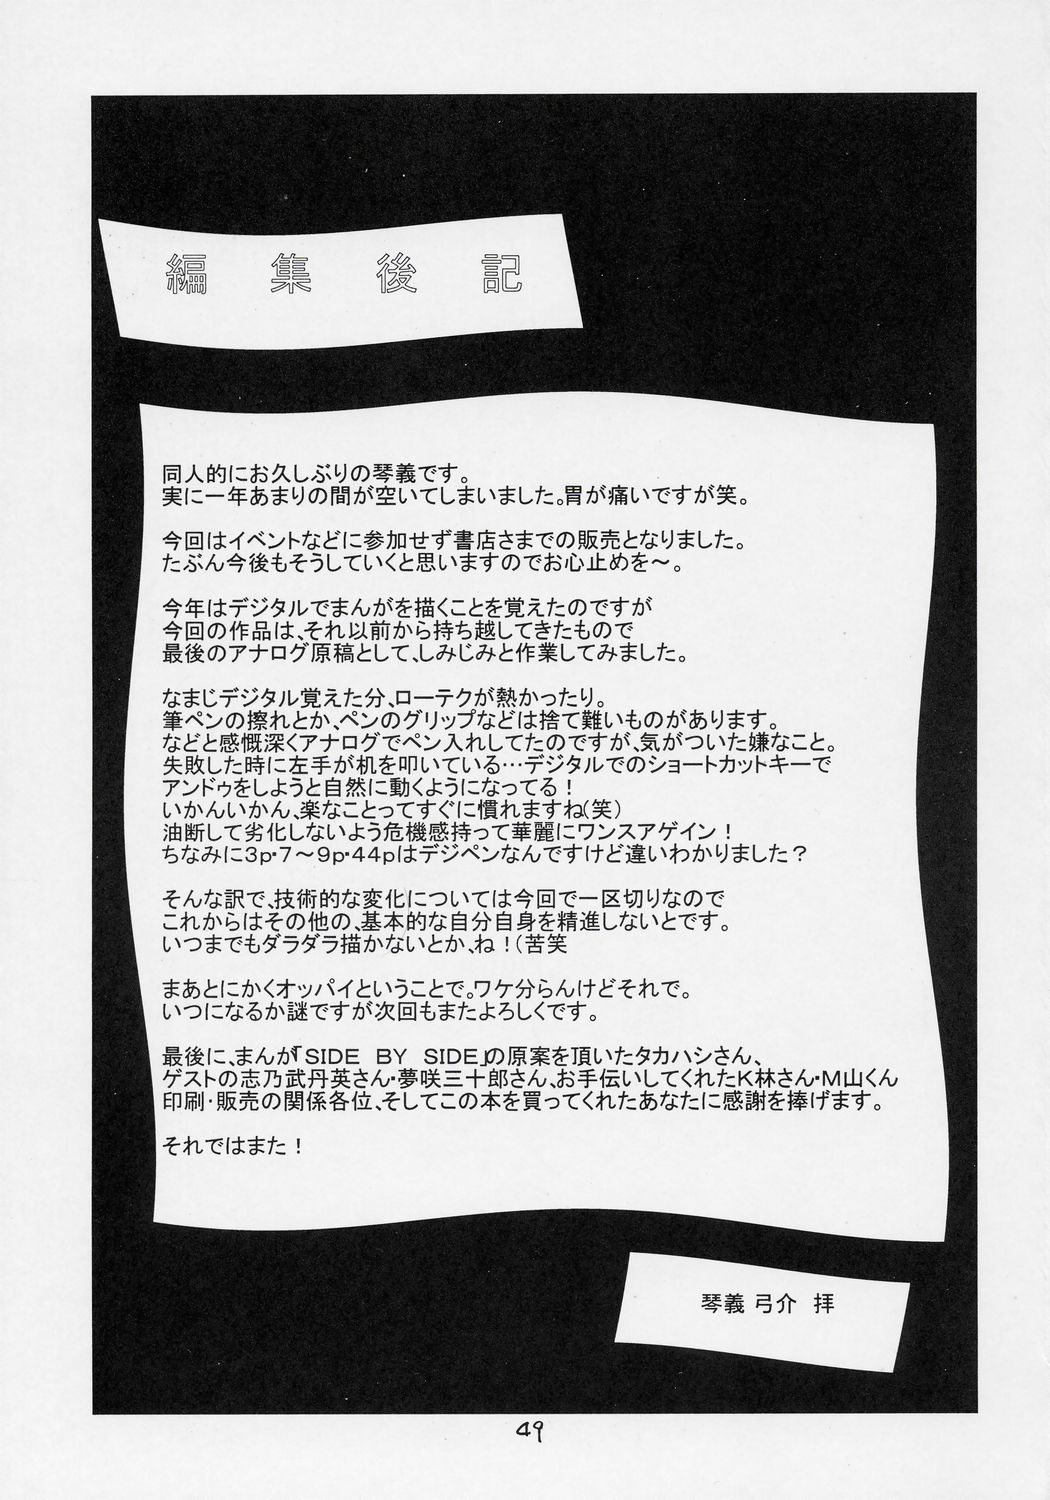 編集後記
同人的にお久しぶりの琴義です。
実に一年あまりの間が空いてしまいました。胃が痛いですが笑。
今回はイベントなどに参加せず書店さまでの販売となりました。
たぶん今後もそうしていくと思いますのでお心止めを～。
今年はデジタルでまんがを描くことを覚えたのですが
今回の作品は、それ以前から持ち越してきたもので
最後のアナログ原稿として、しみじみと作業してみました。
なまじデジタル覚えた分、ローテクが熱かったり。
筆ペンの擦れとか、ペンのグリップなどは捨て難いものがあります。
などと感慨深くアナログでペン入れしてたのですが、気がついた嫌なこと。
失敗した時に左手が机を叩いている…デジタルでのショートカットキーで
アンドゥをしようと自然に動くようになってる！
いかんいかん、楽なことってすぐに慣れますね（笑）
油断して劣化しないよう危機感持って華麗にワンスアゲイン！
ちなみに３ｐ・７～９ｐ・４４ｐはデジペンなんですけど違いわかりました？
そんな訳で、技術的な変化については今回で一区切りなので
これからはその他の、基本的な自分自身を精進しないとです。
いつまでもダラダラ描かないとか、ね！（苦笑
まあとにかくオッパイということで。ワケ分らんけどそれで。
いつになるか謎ですが次回もまたよろしくです。
最後に、まんが「ＳＩＤＥ　ＢＹ　ＳＩＤＥ」の原案を頂いたタカハシさん、
ゲストの志乃武丹英さん・夢咲三十郎さん、お手伝いしてくれたＫ林さん・Ｍ山くん
印刷・販売の関係各位、そしてこの本を買ってくれたあなたに感謝を捧げます。
それではまた！
琴義 弓介　拝
49